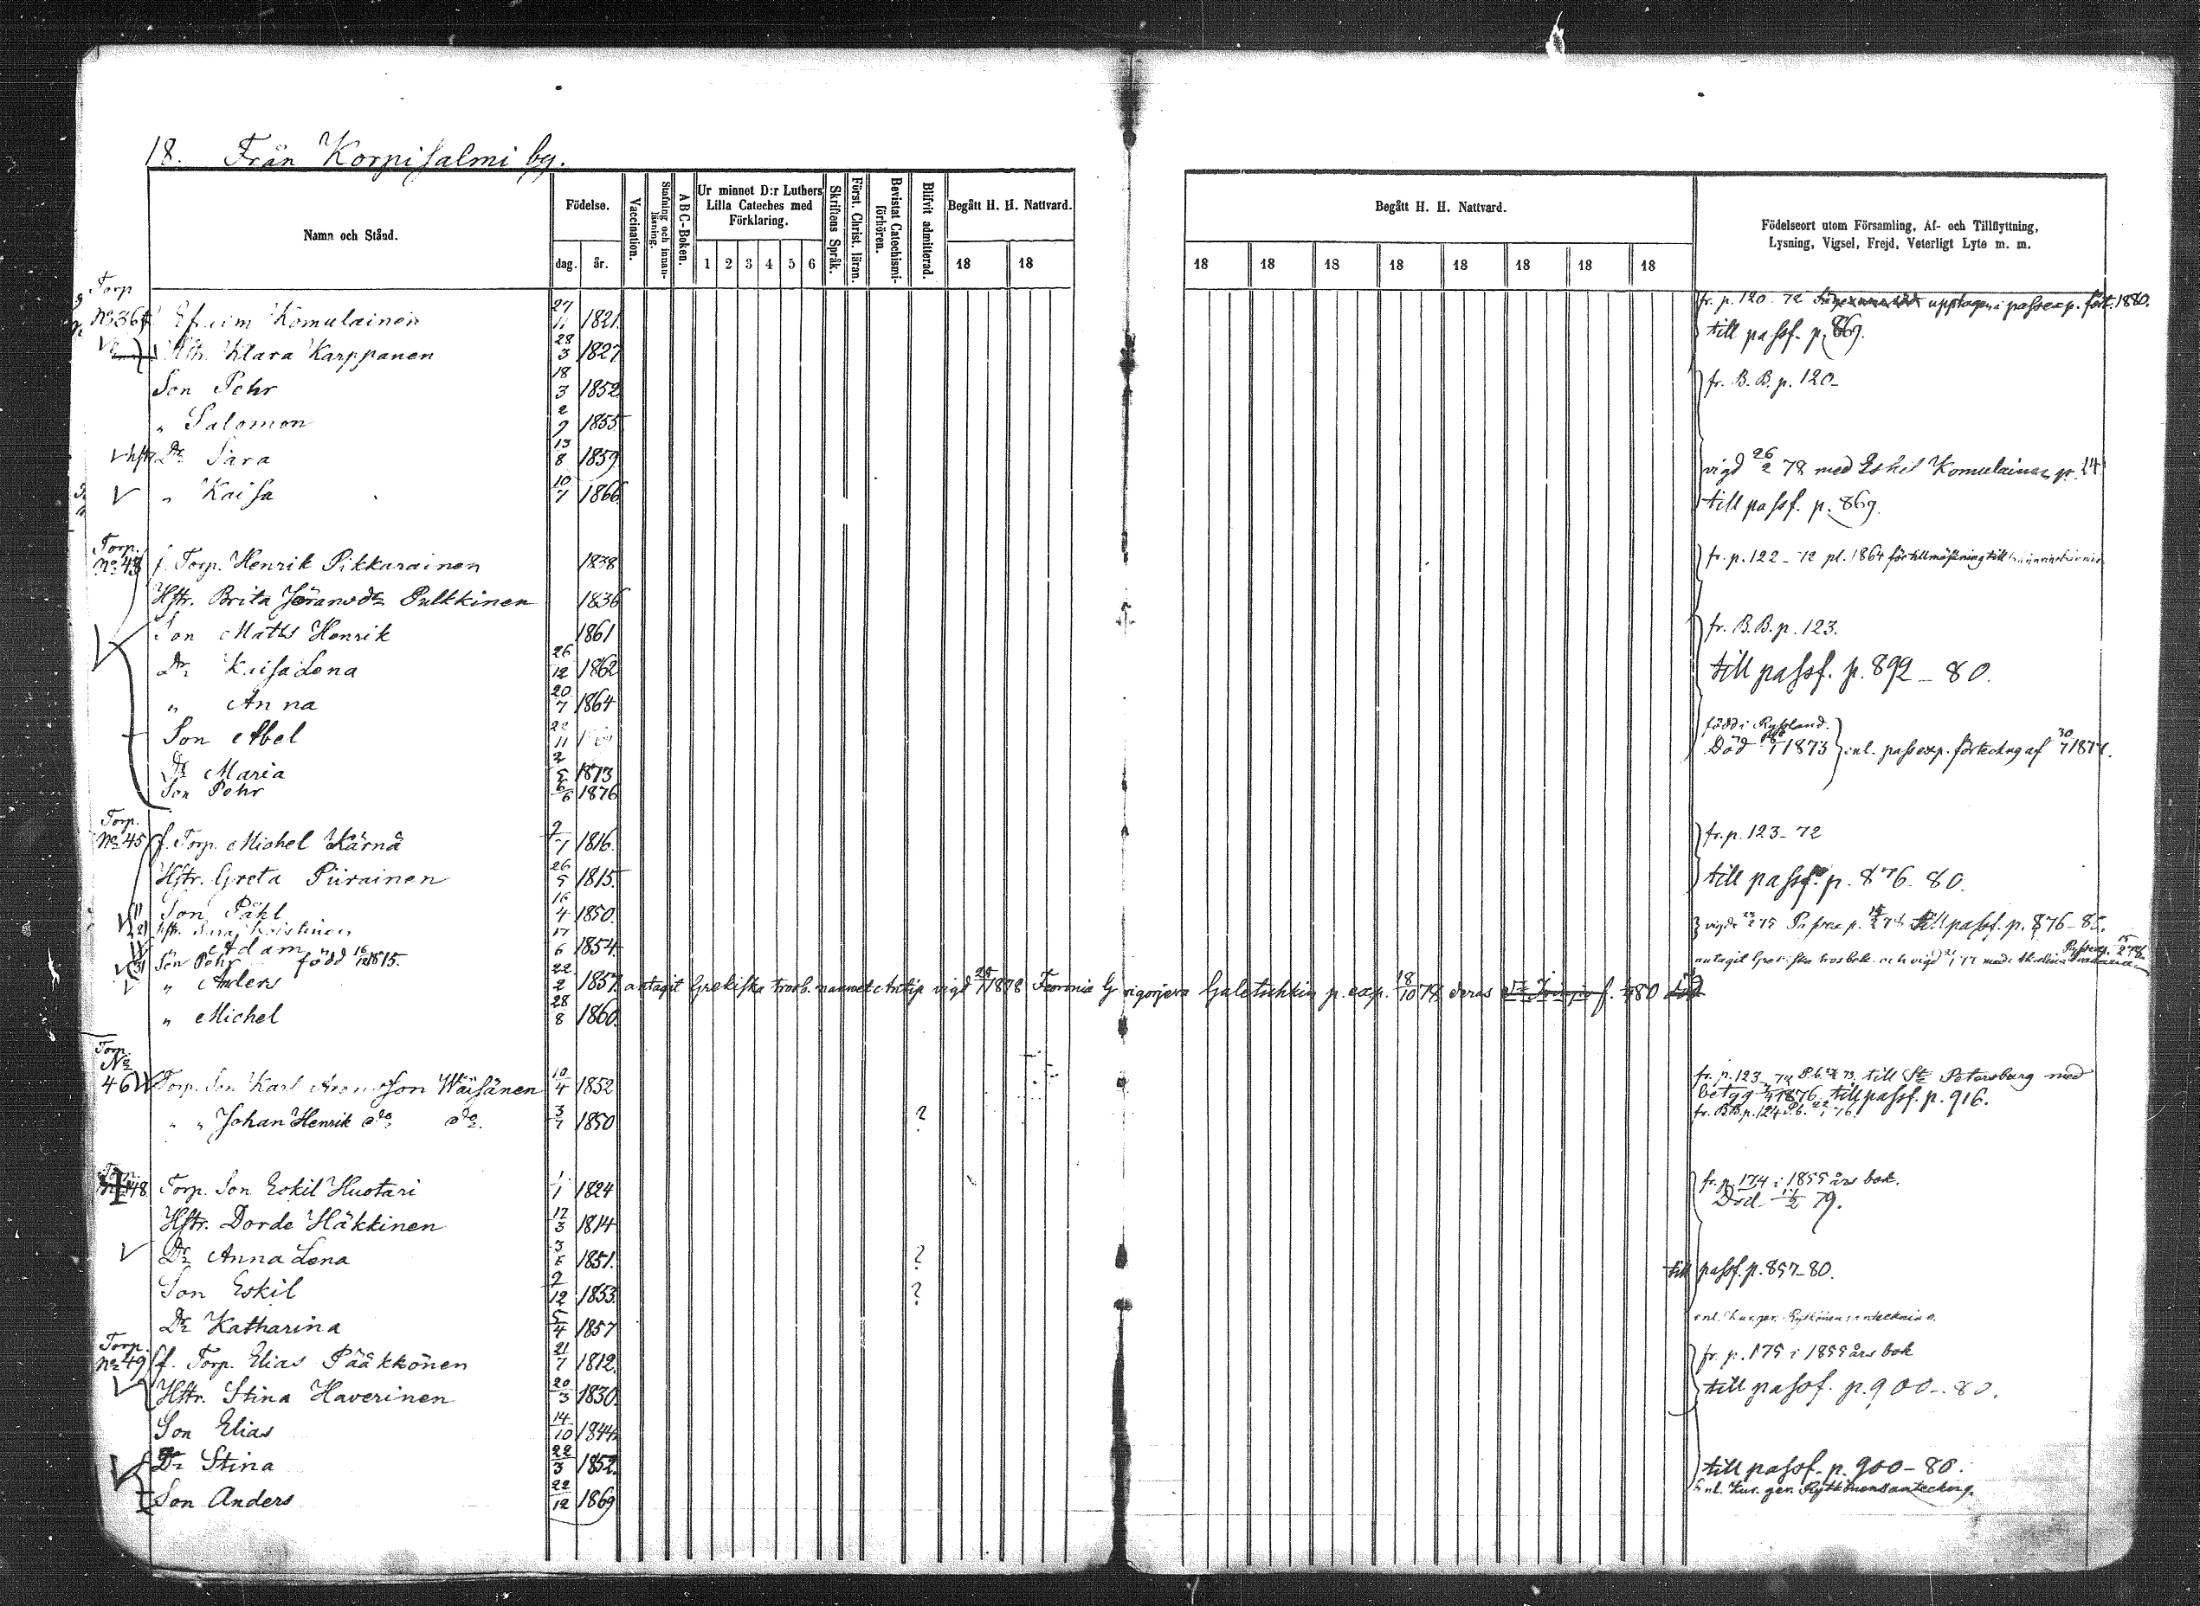 18. Från Korpisalmi by.
Namn och Stånd.
Födelse.
dag. år.
Vaccination.
Stafning och innanläsning.
ABC-Boken.
Ur minnet D:r Luthers Lilla Cateches med Förklaring.
1 2 3 4 5 6
Skriftens Språk.
Först. Christ. läran.
Bevistat Catechismi-förhören.
Blifvit admitterad.
Begått H. H. Nattvard.
18 18
Begått H. H. Nattvard.
18 18 18 18 18 18 18 18
Födelseort utom Församling, Af- och Tillflyttning,
Lysning, Vigsel, Frejd, Veterligt Lyte m. m.
Torp
No 36 Efraim Komulainen 27/11 1821. fr. p. 120-72 upptagen i passexp. fört. 1880.
Hstr. Klara Karppanen 28/3 1827 till passf. p. 869.
Son Pehr 18/3 1852 fr. B. B. p. 120-
" Salomon 2/9 1855
hstr Dr Sara 13/8 1859 vigd 26/2 78 med Eskil Komulainen p. 14
" Kaisa 10/7 1866 till passf. p. 869.
Torp.
No 43 f. Torp. Henrik Pikkarainen 1838 fr. p. 122-72 pl. 1864 för tillmäkning till
Hstr. Brita Göransdr Pulkkinen 1836
Son Maths Henrik 1861 fr. B.B. p. 123.
Dr Kaisa Lena 26/12 1862 till passf. p. 892-80.
" Anna 20/7 1864
Son Abel 22/11 född i Ryssland. Död 1873 enl. passexp. förteckng af 30/7 187
Dr Maria 2/5 1873
Son Pehr 6/6 1876
Torp.
No 45 f. Torp. Michel Kärnä 9/7 1816. fr. p. 123-72
Hstr. Greta Piirainen 26/5 1815. till passf. p. 876-80.
Son Påhl 16/4 1850.
hstr. Sara vigde 75 till passf. p. 876-80.
" Adam 17/6 1854.
Son Pehr född antagit Grekiska trosbek. och vigd
" Anders 22/2 1857. antagit Grekiska trosb. namnet Antip vigd 1878 Feoronia Grigorjeva Galetschkin p. exp. 18/10 79 deras f. 80
" Michel 28/8 1860.
Torp.
No
46 Torp. Son Karl Aronsson Wäisänen 10/4 1852 fr. p. 123-72 till St Petersburg med
betyg 1876. till passf. p. 916.
" " Johan Henrik do do. 3/7 1850 ? fr. BB. p. 124
48 Torp. Son Eskil Huotari 1/1 1824 fr. p. 174 i 1855 års bok.
Död 79.
Hstr. Dorde Häkkinen 17/3 1814
Dr Anna Lena 1851. ? till passf. p. 857-80.
Son Eskil 2/12 1853. ?
Dr Katharina 5/4 1857
Torp.
No 49 f. Torp. Elias Pääkkönen 21/7 1812. fr. p. 175 i 1855 års bok
Hstr. Stina Haverinen 20/3 1830. till passf. p. 900-80.
Son Elias 14/10 1844
Dr Stina 22/3 1852. till passf. p. 900-80.
Son Anders 22/12 1869 enl. Kur. gen. Ryttkönens anteckng.